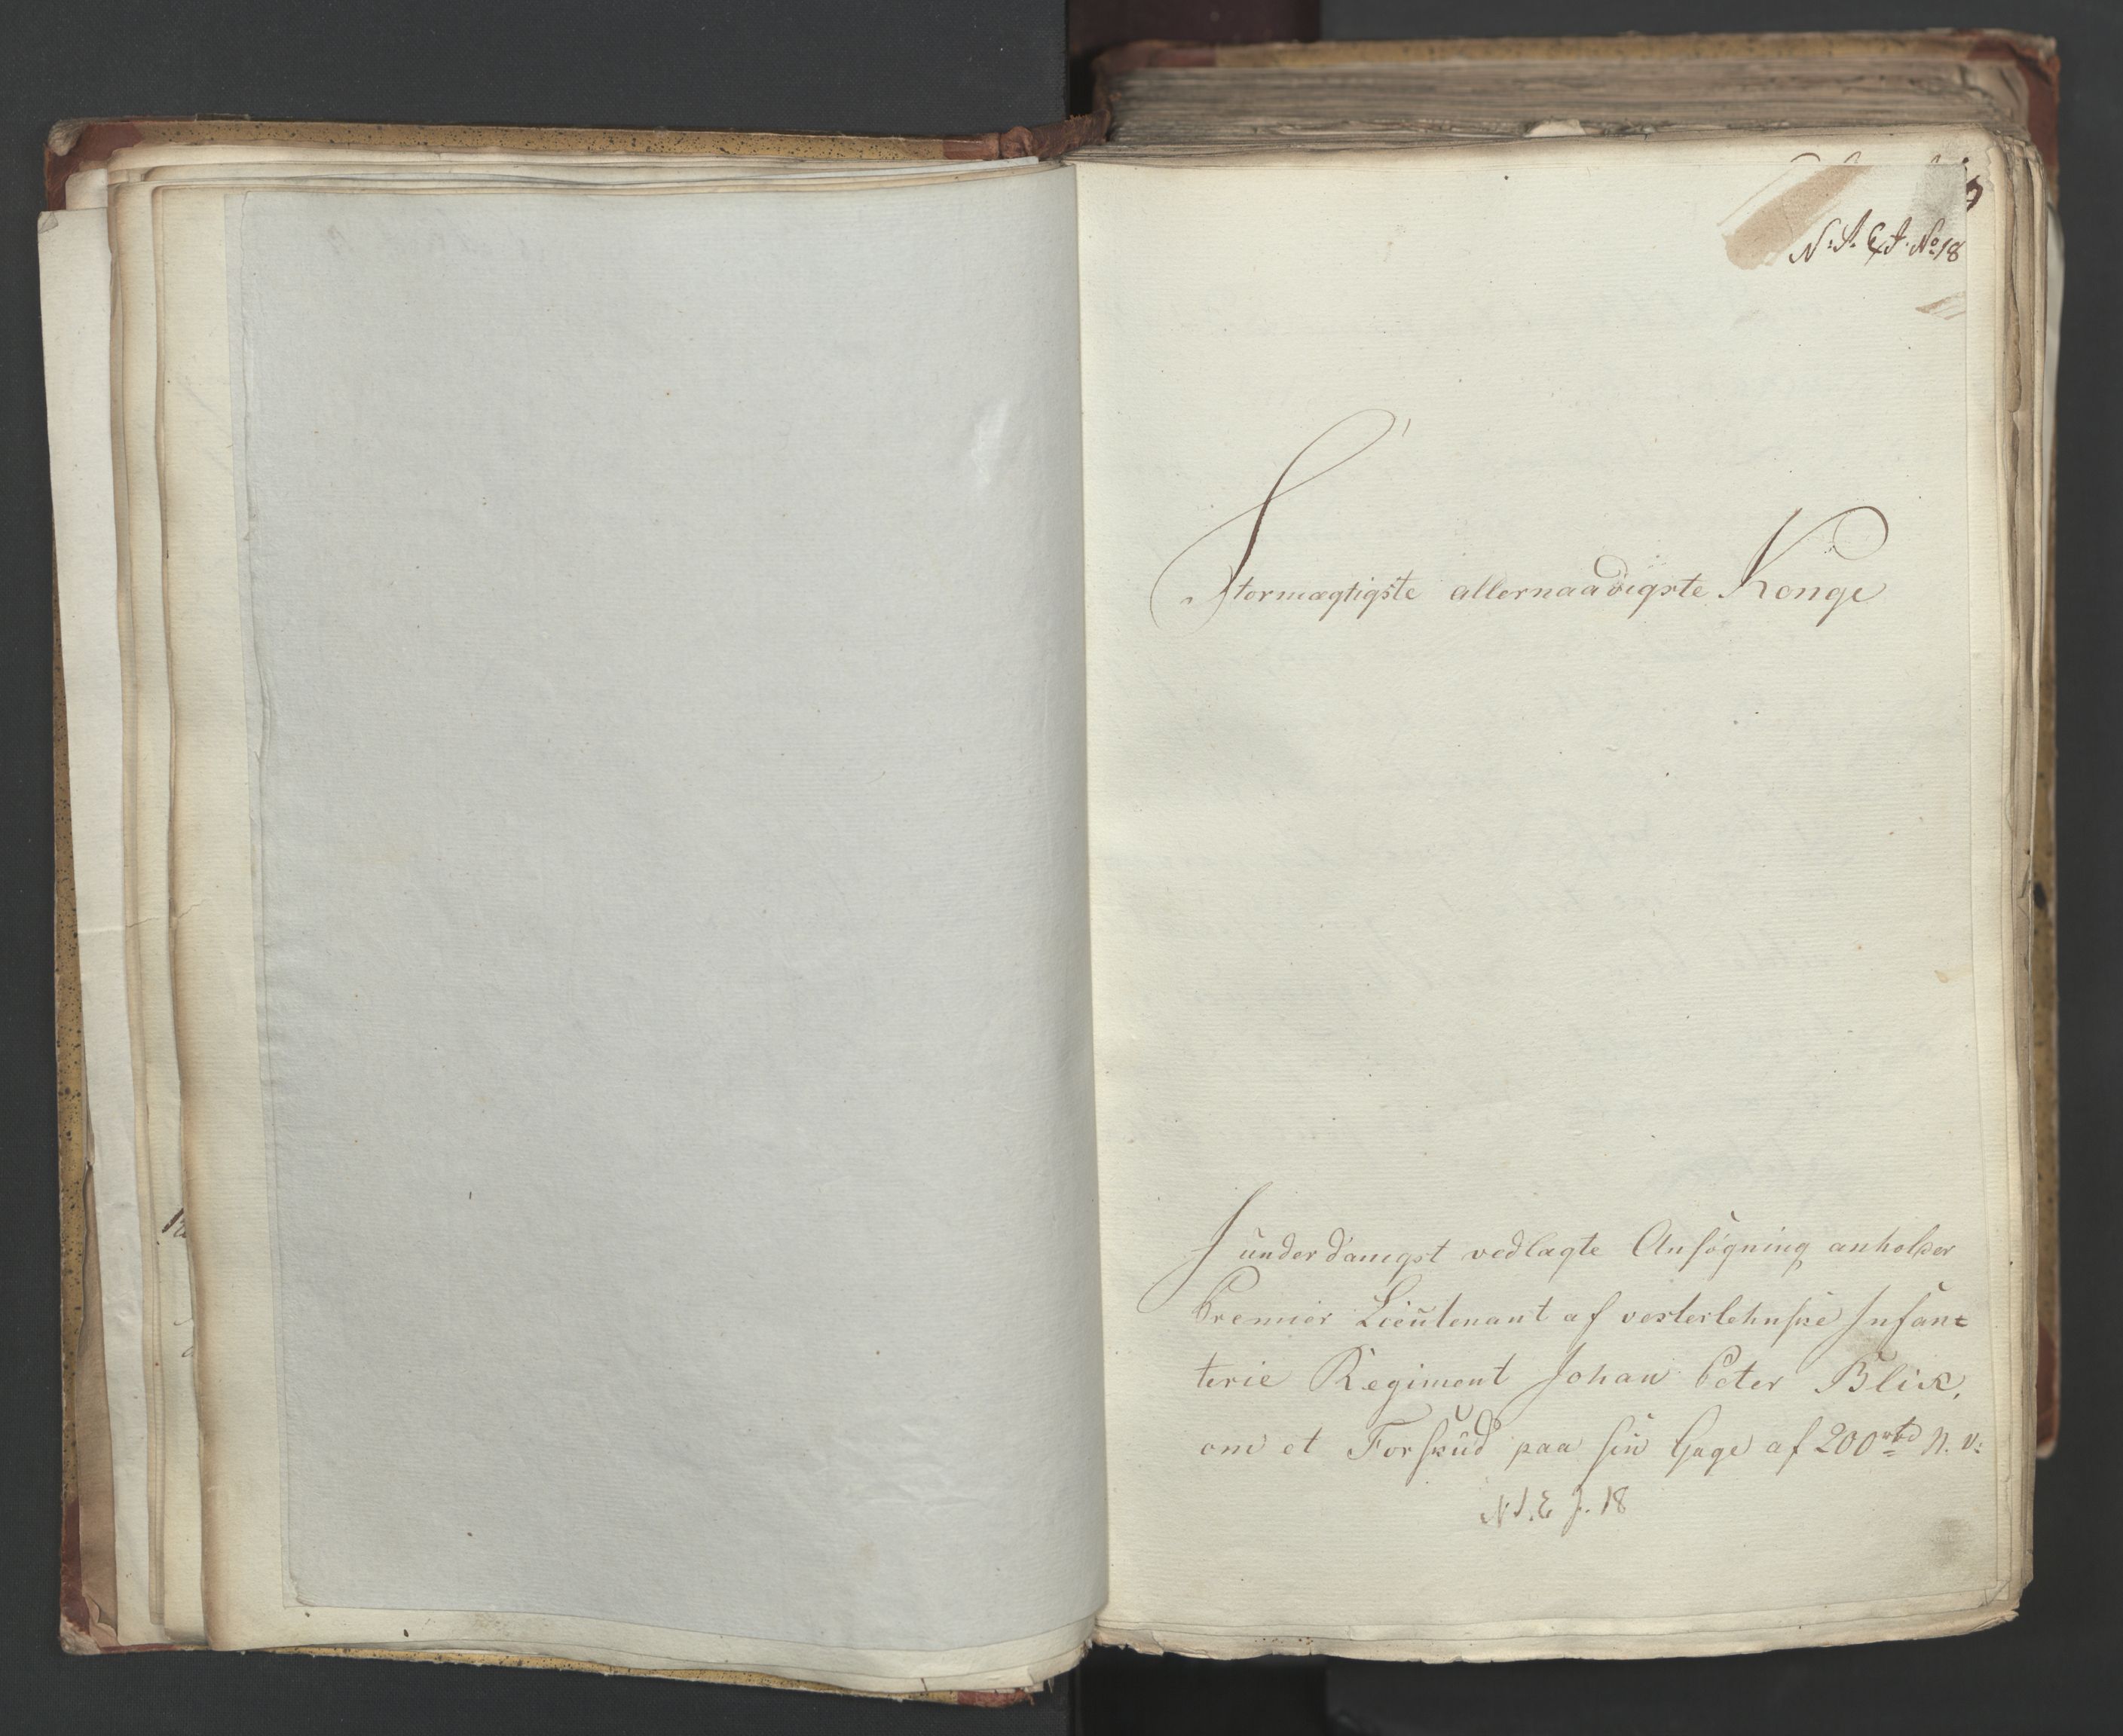 N: S: Ex J. No 18
Stormægtigste allernaadigste Konge
I underdanigst vedlagte Ansøgning anholder
Premier Lieutenant af vesterlehnske Infan=
terie Regiment Johan Peter Blix,
om et Forskud paa sin Gage af 200 rbd N. V:
N S. E J. 18